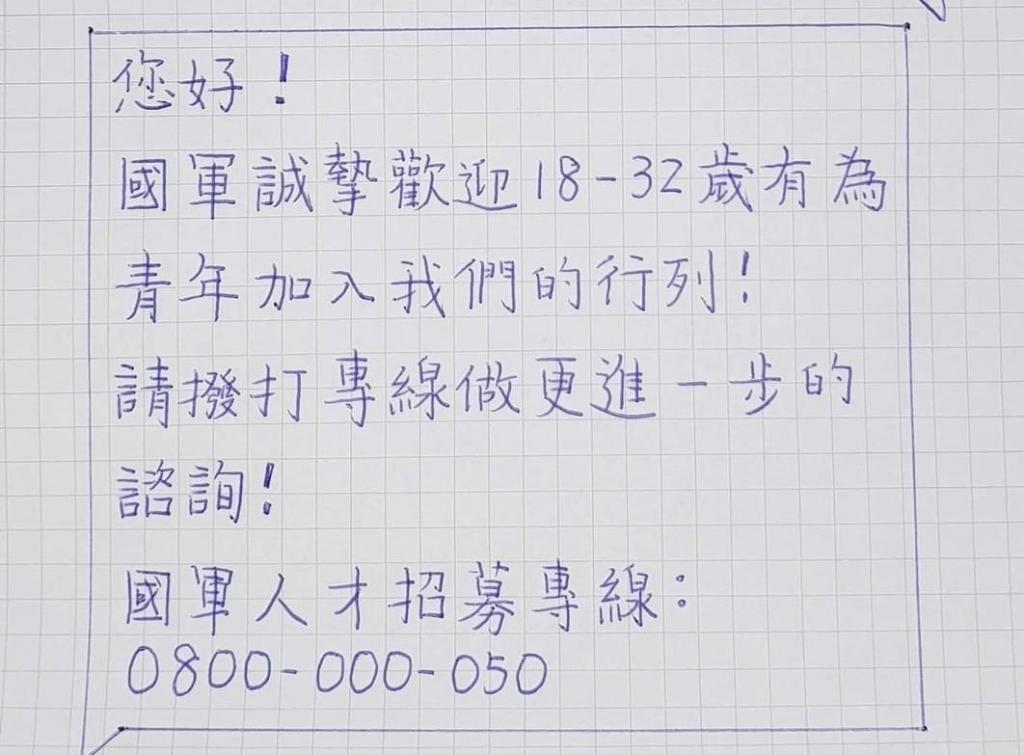 您好！
國軍誠摯歡迎18-32歲有為
青年加入我們的行列！
請撥打專線做更進一步的
諮詢！
國軍人才招募專線：
0800-000-050